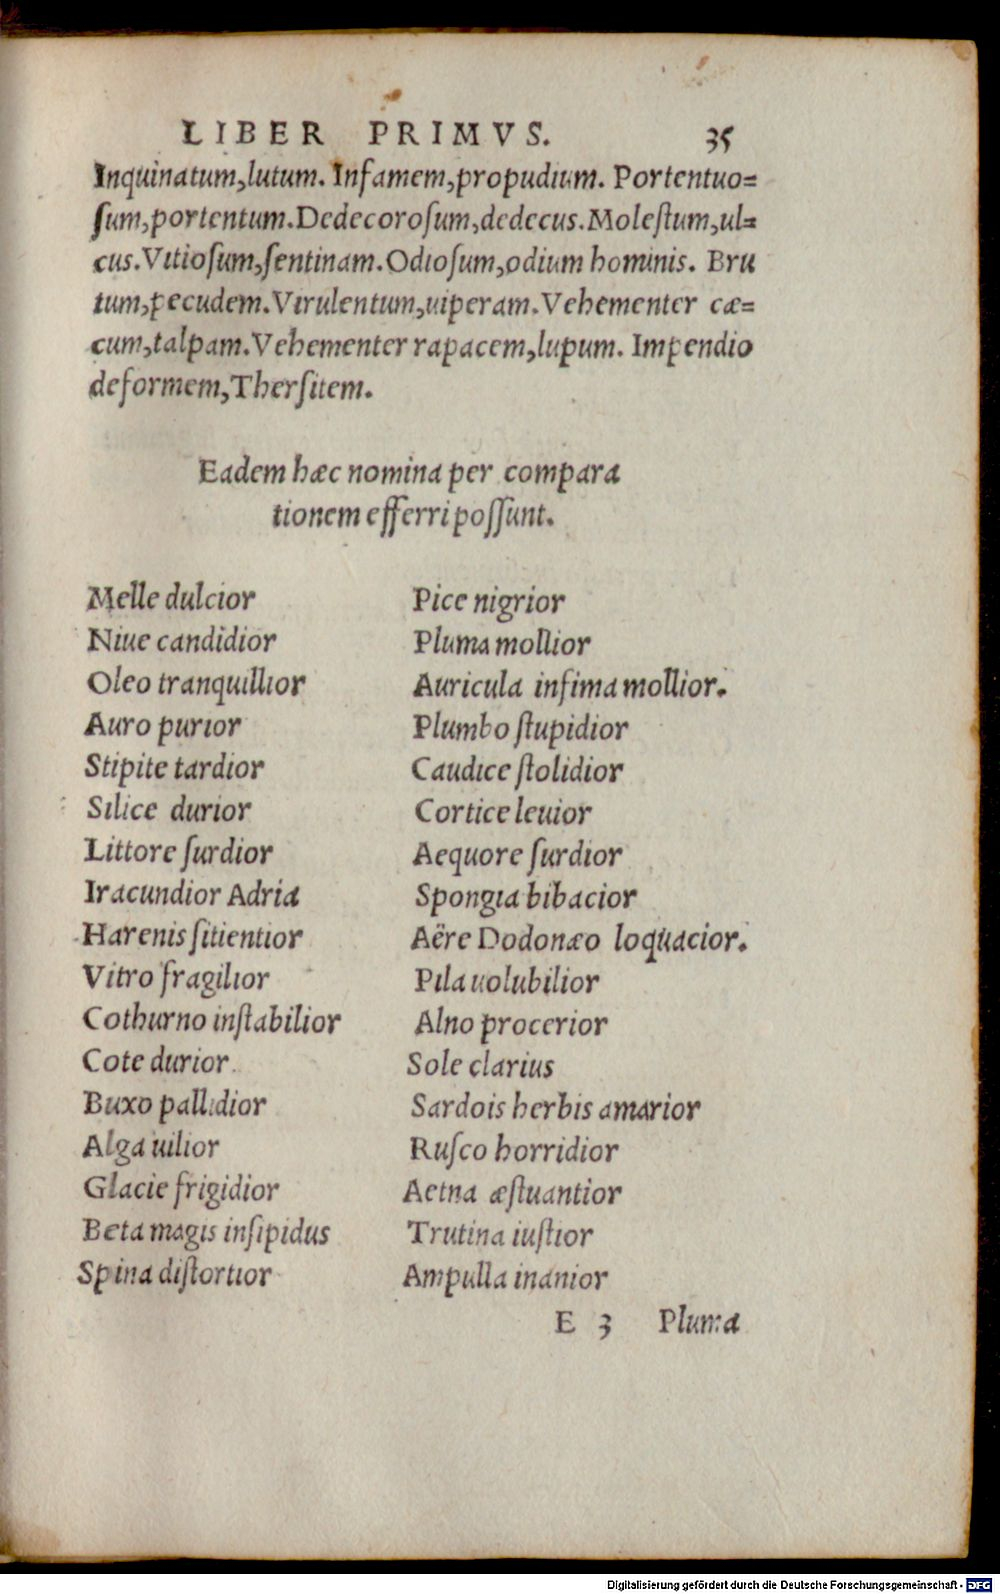 LIBER PRIMVS. 35
Inquinatum,lutum. Infamem,propudium. Portentuo=
ſum,portentum.Dedecoroſum,dedecus.Moleſtum,ul=
cus.Vitioſum,ſentinam.Odioſum,odium hominis. Bru
tum,pecudem.Virulentum,uiperam.Vehementer cæ=
cum,talpam.Vehementer rapacem,lupum. Impendio
deformem,Therſitem.
Eadem hæc nomina per compara
tionem efferri poſſunt.
Melle dulcior
Niue candidior
Oleo tranquillior
Auro purior
Stipite tardior
Silice durior
Littore ſurdior
Iracundior Adria
Harenis ſitientior
Vitro fragilior
Cothurno inſtabilior
Cote durior
Buxo pallidior
Alga uilior
Glacie frigidior
Beta magis inſipidus
Spina diſtortior
Pice nigrior
Pluma mollior
Auricula infima mollior.
Plumbo ſtupidior
Caudice ſtolidior
Cortice leuior
Aequore ſurdior
Spongia bibacior
Aëre Dodonæo loquacior.
Pila uolubilior
Alno procerior
Sole clarius
Sardois herbis amarior
Ruſco horridior
Aetna æſtuantior
Trutina iuſtior
Ampulla inanior
E 3 Pluma
Digitalisierung gefördert durch die Deutsche Forschungsgemeinschaft - DFG